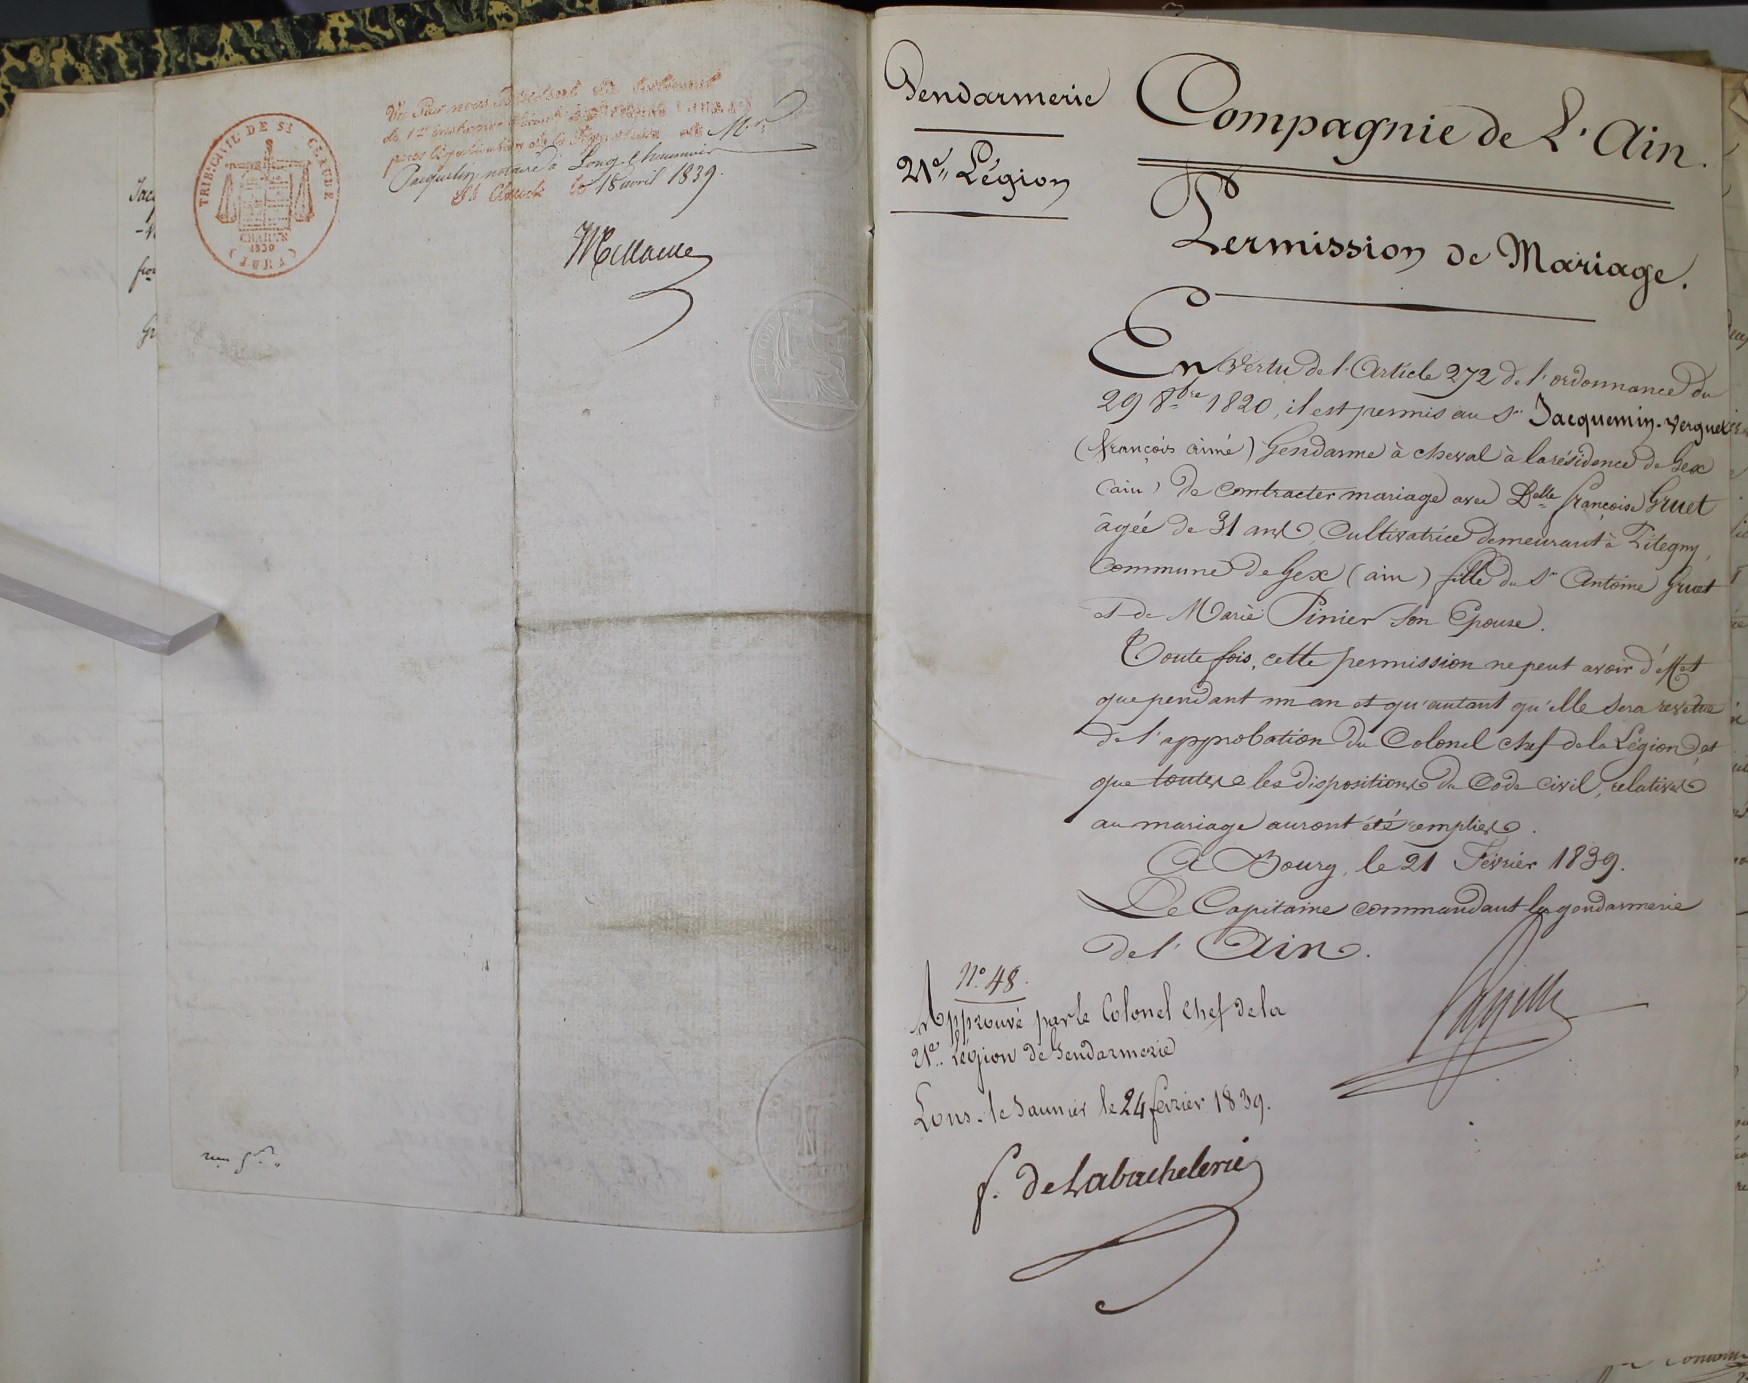 TRIBUNAL DE St CLAUDE
CHARTE
1830
(JURA)
Vu Par nous Président du tribunal
de 1ère instance
pour légalisation de la Signature de Mr
Jacquelin notaire à Longchaumois
St Claude le 18 avril 1839.
Gendarmerie
21e Légion
Compagnie de L'Ain.
Permission de Mariage.
En vertu de l'Article 272 de l'ordonnance du
29 8bre 1820, il est permis au Sr Jacquemin-Verguet
(françois aimé) Gendarme à cheval à la résidence de Gex
(ain) de contracter mariage avec Delle françoise Gruet
âgée de 31 ans, Cultivatrice demeurant à Pitegny,
Commune de Gex (ain) fille du Sr Antoine Gruet
et de Marie Pinier son Epouse.
Toute fois, cette permission ne peut avoir d'éffet
que pendant un an et qu'autant qu'elle sera revetue
de l'approbation du Colonel chef de la Légion, et
que toutes les dispositions du Code civil, relatives
au mariage auront été remplies.
A Bourg, le 21 Février 1839.
Le Capitaine commandant la gendarmerie
de l'Ain.
N° 48.
Approuvé par le Colonel Chef de la
21e Légion de Gendarmerie
Lons-le-Saunier le 24 février 1839.
f. de Labachelerie